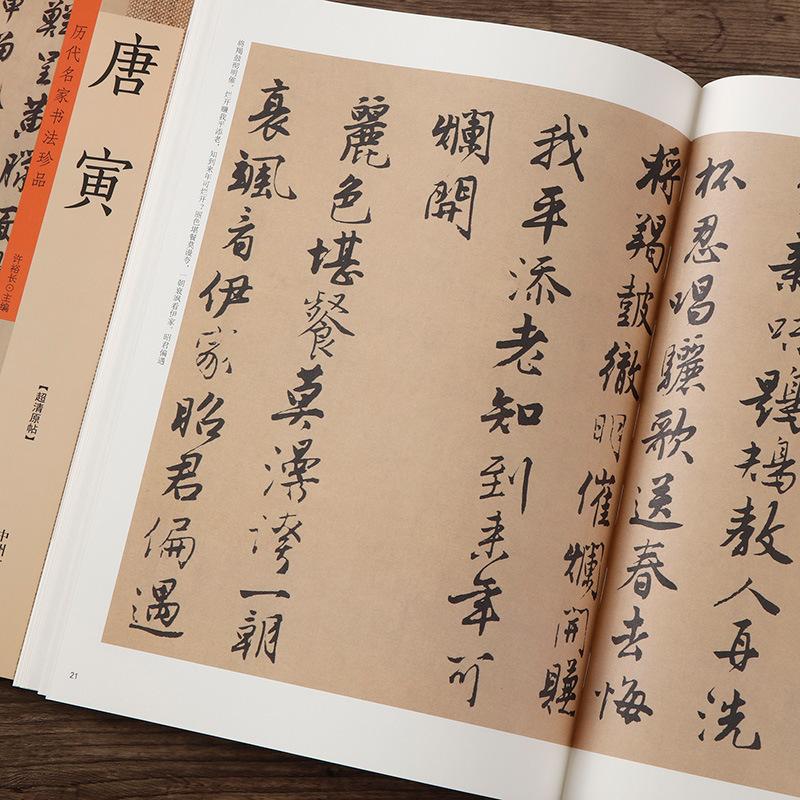 历代名家书法珍品
唐寅
许裕长⊙主编
【超清原帖】
教人再洗
杯忍唱驪歌送春去悔
將羯鼓徹明催爛開賺
我平添老知到来年可
爛開
麗色堪餐莫漫誇一朝
衰颯看伊家昭君偏遇
将羯鼓彻明催，烂开赚我平添老，知到来年可烂开？丽色堪餐莫漫夸，一朝衰飒看伊家，昭君偏遇
21